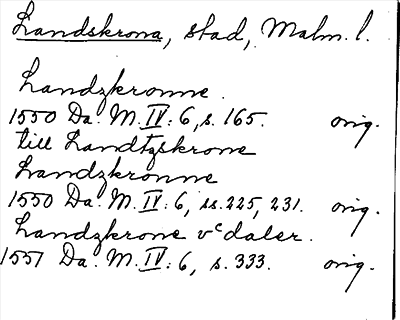 Landskrona, stad, Malm. l.
Landzkronne.
1550 Da. M. IV: 6, s. 165. orig.
till Landtzskrone
Landzkronne
1550 Da. M. IV: 6, ss. 225, 231. orig.
Landzkrone vc daler.
1551 Da. M. IV: 6, s. 333. orig.